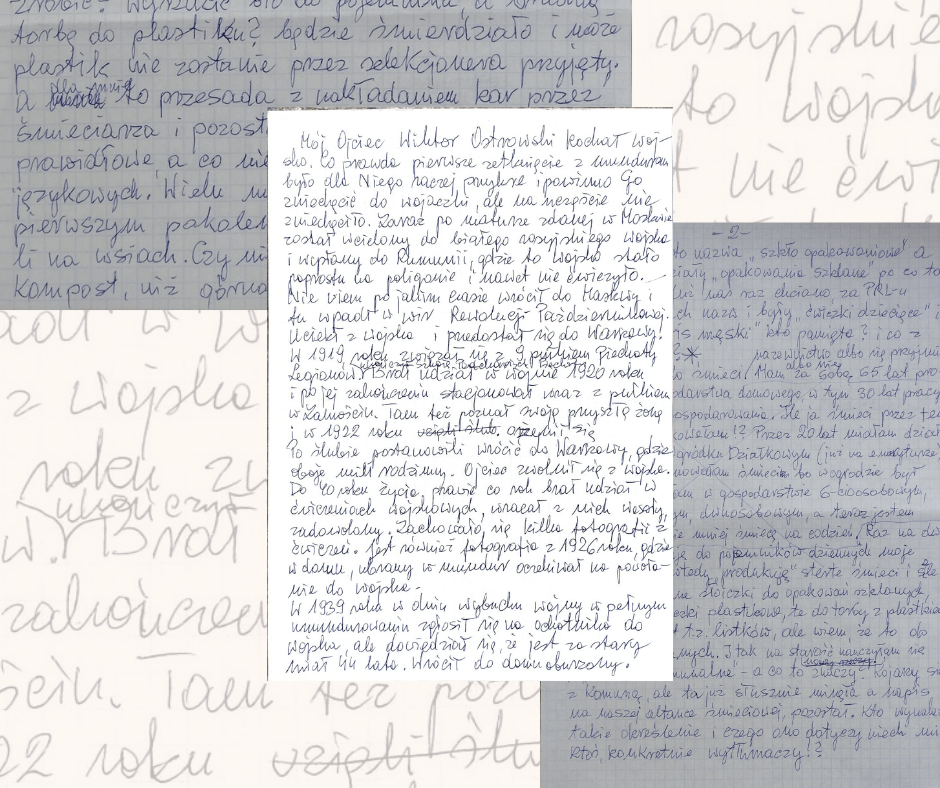 zrobić? Wyrzucić
torbę do plastiku? będzie śmierdziało i może
plastik nie zostanie przez selekcjonera przyjęty.
a dla mnie to przesada z nakładaniem kar przez
śmieciarza i pozost
prawidłowe, a co nie
językowych. Wielu
pierwszym pokolen
li na wsiach. Czy
kompost, niż górna
rosyjskie
to wojsko
nie ćwi
Mój Ojciec Wiktor Ostrowski kochał woj-
sko. Co prawda pierwsze zetknięcie z mundurem
było dla Niego raczej przykre i powinno Go
zniechęcić do wojaczki, ale na szczęście nie
zniechęciło. Zaraz po maturze zdanej w Moskwie
został wcielony do białego rosyjskiego wojska
i wysłany do Rumunii, gdzie to wojsko stało
poprostu na poligonie i nawet nie ćwiczyło.
Nie wiem po jakim czasie wrócił do Moskwy i
tu wpadł w wir Rewolucji Październikowej.
Uciekł z wojska i przedostał się do Warszawy.
W 1919 roku związał się z 9 pułkiem Piechoty
Legionów, ukończył Szkołę Podchorążych Piechoty
Brał udział w wojnie 1920 roku
i po jej zakończeniu stacjonował wraz z pułkiem
w Zamościu. Tam też poznał swoją przyszłą żonę
i w 1922 roku wzięli ślub. ożenił się
Po ślubie postanowili wrócić do Warszawy, gdzie
oboje mieli rodziny. Ojciec zwolnił się z wojska.
Do 40 roku życia, prawie co rok brał udział w
ćwiczeniach wojskowych, wracał z nich wesoły,
zadowolony. Zachowało się kilka fotografii z
ćwiczeń. Jest również fotografia z 1926 roku, gdzie
w domu, ubrany w mundur oczekiwał na powoła-
nie do wojska.
W 1939 roku w dniu wybuchu wojny w pełnym
umundurowaniu zgłosił się na ochotnika do
wojska, ale dowiedział się, że jest za stary
miał 44 lata. Wrócił do domu oburzony.
-2-
to nazwa „szkło opakowaniowe” a
„opakowania szklane” po co to
nas raz chciano, za PRL-u
nazw i były „ćwieki dziecięce” i
męski” kto pamięta? i co z
nazewnictwo albo się przyjmie
albo nie
śmieci. Mam za sobą 65 lat pro
domowego, w tym 30 lat pracy
gospodarowania. Ile ja śmieci przez te
Przez 20 lat miałam dział
Działkowym (już na emeryturze,
śmieci bo w ogrodzie był
w gospodarstwie 6-cioosobowym,
dwuosobowym, a teraz jestem
mniej śmiecę na codzień. Raz na dw
do pojemników dziennych moje
„produkuję” stertę śmieci i
słoiczki do opakowań szklanych,
plastikowe, te do torby z plastikiem
t.z. listków, ale wiem, że to do
I tak na starość nauczyłam się
- a co to znaczy? Kojarzy
z komuną, ale ta już słusznie minęła a napis
na naszej altance śmieciowej, pozostał. Kto wymyślił
takie określenie i czego ono dotyczy niech mi
ktoś konkretnie wytłumaczy!?
z wojska
roku zw
ukończył
w. Brał
zakończen
ściu. Tam też pozn
22 roku wzięli ślu